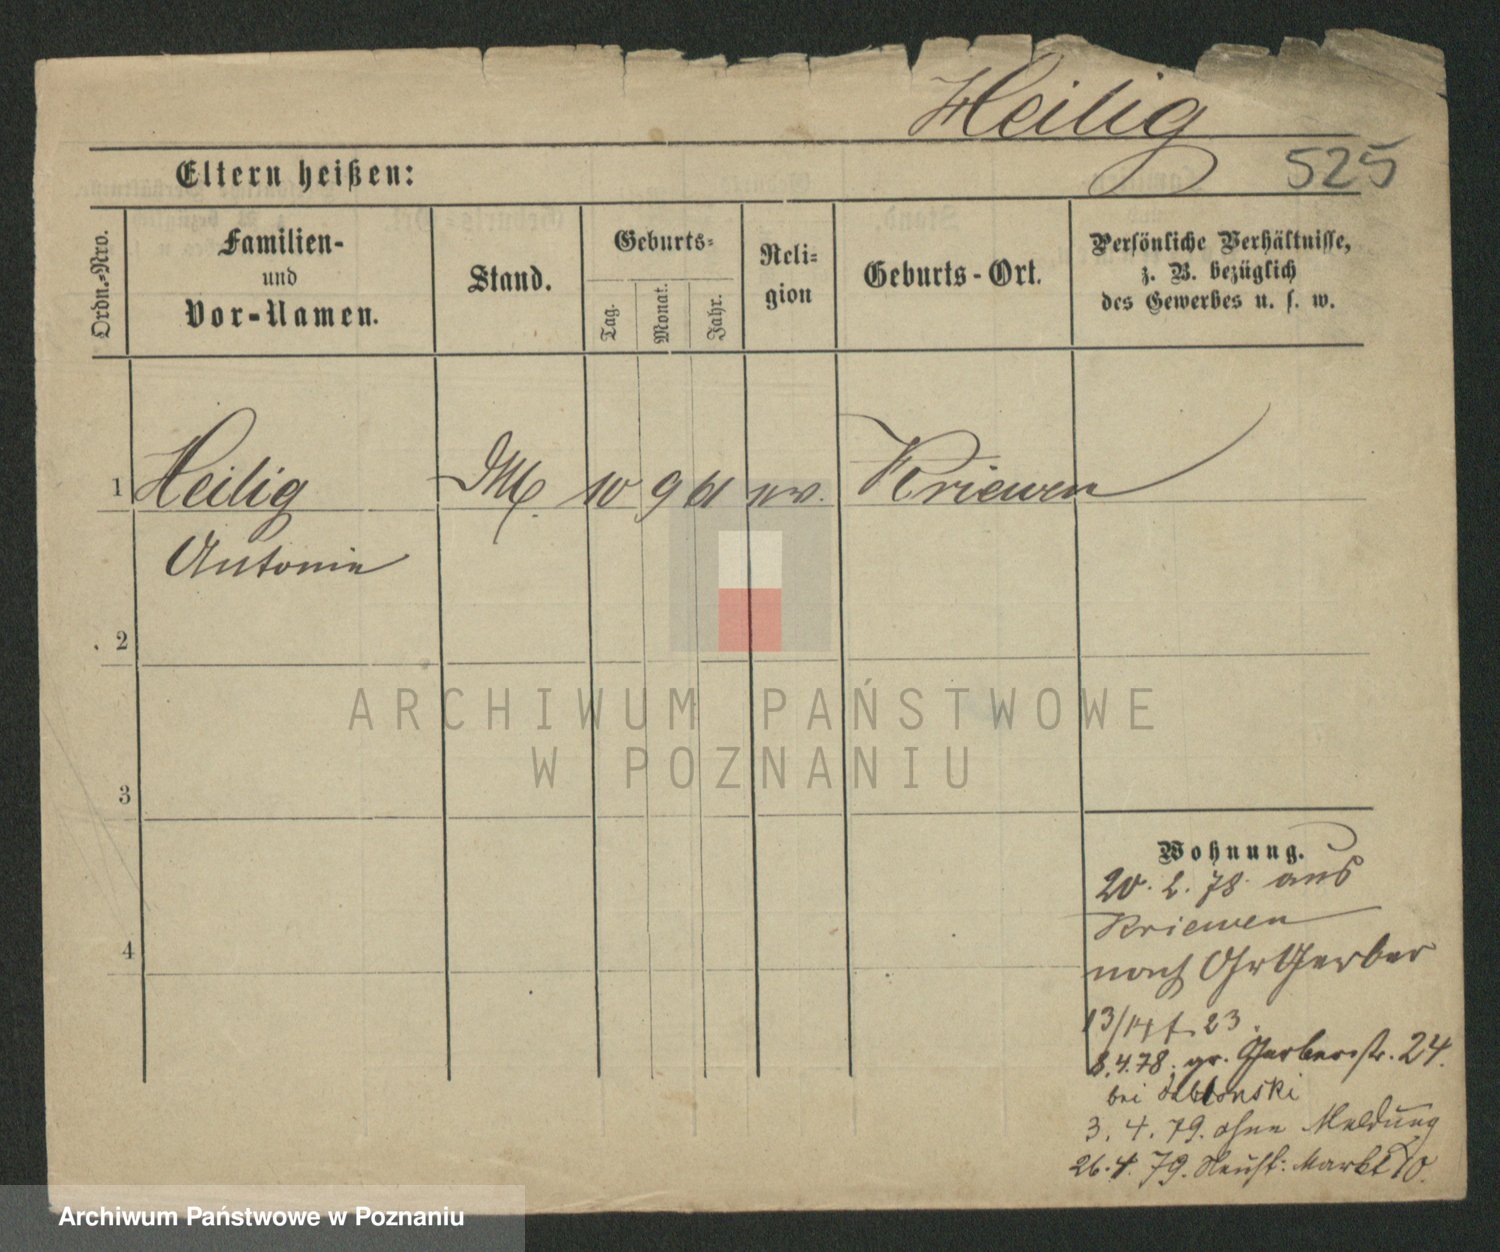 Heilig
525
Eltern heißen:
Ordn.-Nro.
Familien-
und
Vor-Namen.
Stand.
Geburts-
Tag.
Monat.
Jahr.
Reli-
gion
Geburts-Ort.
Persönliche Verhältnisse,
z. B. bezüglich
des Gewerbes u. s. w.
1 Heilig 10 9 61 ev. Kriewen
Antonie
2
3
4
ARCHIWUM PAŃSTWOWE
W POZNANIU
Wohnung.
20. 2. 78. aus
Kriewen
nach Gr Gerber
13/14 23.
8.4.78. gr. Gerberstr. 24.
bei Jablonski
3. 4. 79. ohne Meldung
26. 4. 79. Neust: Markt 10.
Archiwum Państwowe w Poznaniu